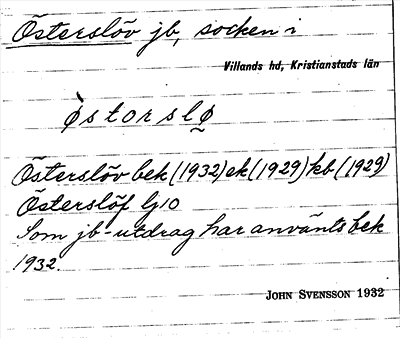 Österslöv jb, socken i
Villands hd, Kristianstads län
ø̀storslø̰
Österslöv bek (1932) ek (1929) kb (1929)
Österslöf Gj10
Som jb-utdrag har använts bek
1932.
JOHN SVENSSON 1932